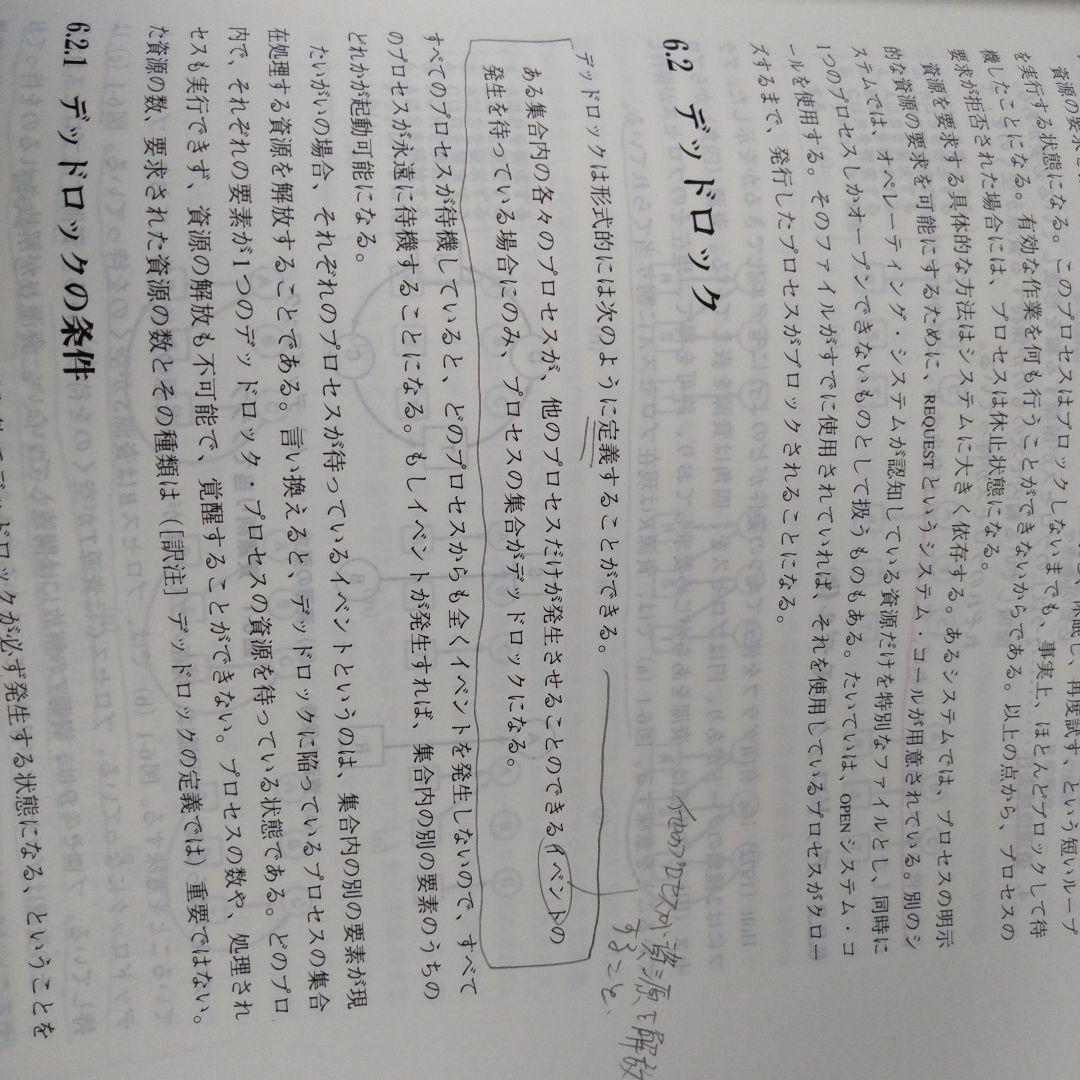 資源の要求
休眠し、再度試す、という短いループ
を実行する状態になる。このプロセスはブロックしないまでも、事実上、ほとんどブロックして待
機したことになる。有効な作業を何も行うことができないからである。以上の点から、プロセスの
要求が拒否された場合には、プロセスは休止状態になる。
資源を要求する具体的な方法はシステムに大きく依存する。あるシステムでは、プロセスの明示
的な資源の要求を可能にするために、REQUESTというシステム・コールが用意されている。別のシ
ステムでは、オペレーティング・システムが認知している資源だけを特別なファイルとし、同時に
1つのプロセスしかオープンできないものとして扱うものもある。たいていは、OPENシステム・コ
ールを使用する。そのファイルがすでに使用されていれば、それを使用しているプロセスがクロー
ズするまで、発行したプロセスがブロックされることになる。
6.2 デッドロック
デッドロックは形式的には次のように定義することができる。
他のプロセスが資源を解放
すること、
ある集合内の各々のプロセスが、他のプロセスだけが発生させることのできるイベントの
発生を待っている場合にのみ、プロセスの集合がデッドロックになる。
すべてのプロセスが待機していると、どのプロセスからも全くイベントを発生しないので、すべて
のプロセスが永遠に待機することになる。もしイベントが発生すれば、集合内の別の要素のうちの
どれかが起動可能になる。
たいがいの場合、それぞれのプロセスが待っているイベントというのは、集合内の別の要素が現
在処理する資源を解放することである。言い換えると、デッドロックに陥っているプロセスの集合
内で、それぞれの要素が1つのデッドロック・プロセスの資源を待っている状態である。どのプロ
セスも実行できず、資源の解放も不可能で、覚醒することができない。プロセスの数や、処理され
た資源の数、要求された資源の数とその種類は（[訳注］デッドロックの定義では）重要ではない。
6.2.1 デッドロックの条件
デッドロックが必ず発生する状態になる、ということを